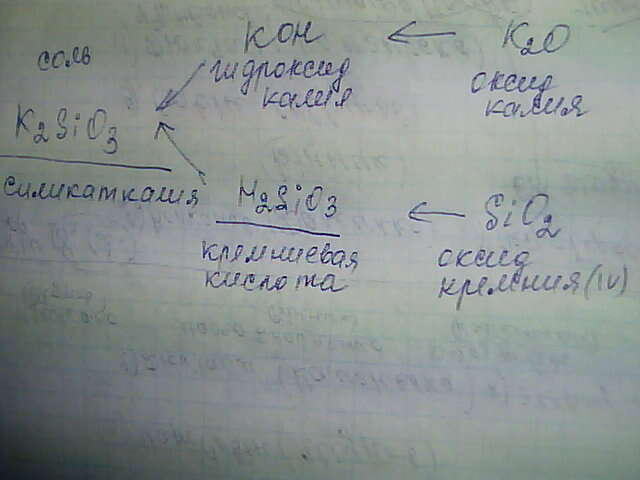 соль
KOH ← K₂O
гидроксид калия
оксид калия
K₂SiO₃
силикат калия
H₂SiO₃ ← SiO₂
кремниевая кислота
оксид кремния (IV)